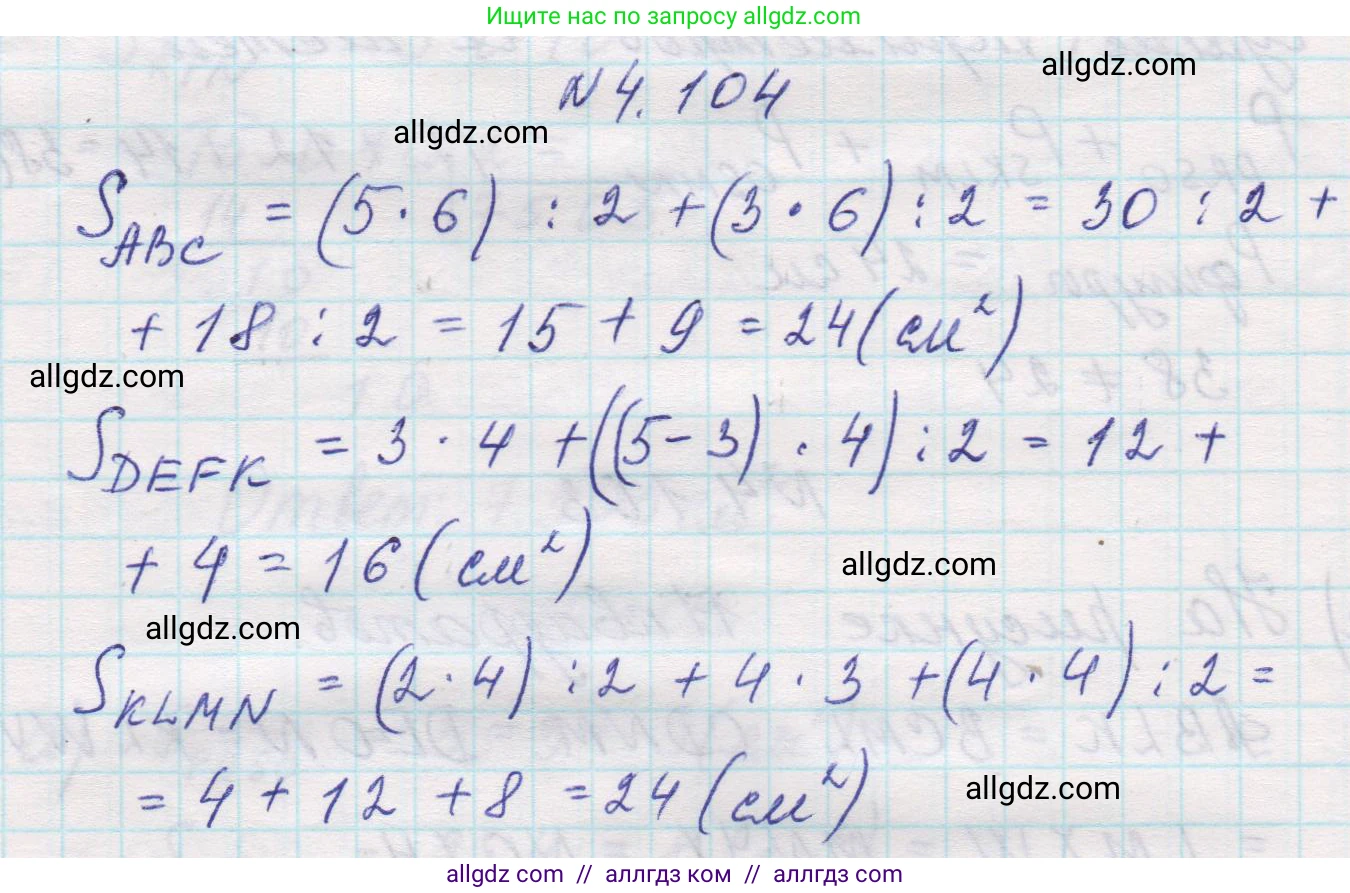 Ищите нас по запросу allgdz.com
allgdz.com
N 4.104
allgdz.com
S ABC = (5 · 6) : 2 + (3 · 6) : 2 = 30 : 2 +
+ 18 : 2 = 15 + 9 = 24 (см²)
allgdz.com
S DEFK = 3 · 4 + ((5 - 3) · 4) : 2 = 12 +
+ 4 = 16 (см²)
allgdz.com
allgdz.com
S KLMN = (2 · 4) : 2 + 4 · 3 + (4 · 4) : 2 =
= 4 + 12 + 8 = 24 (см²)
allgdz.com
allgdz.com // аллгдз ком // аллгдз com